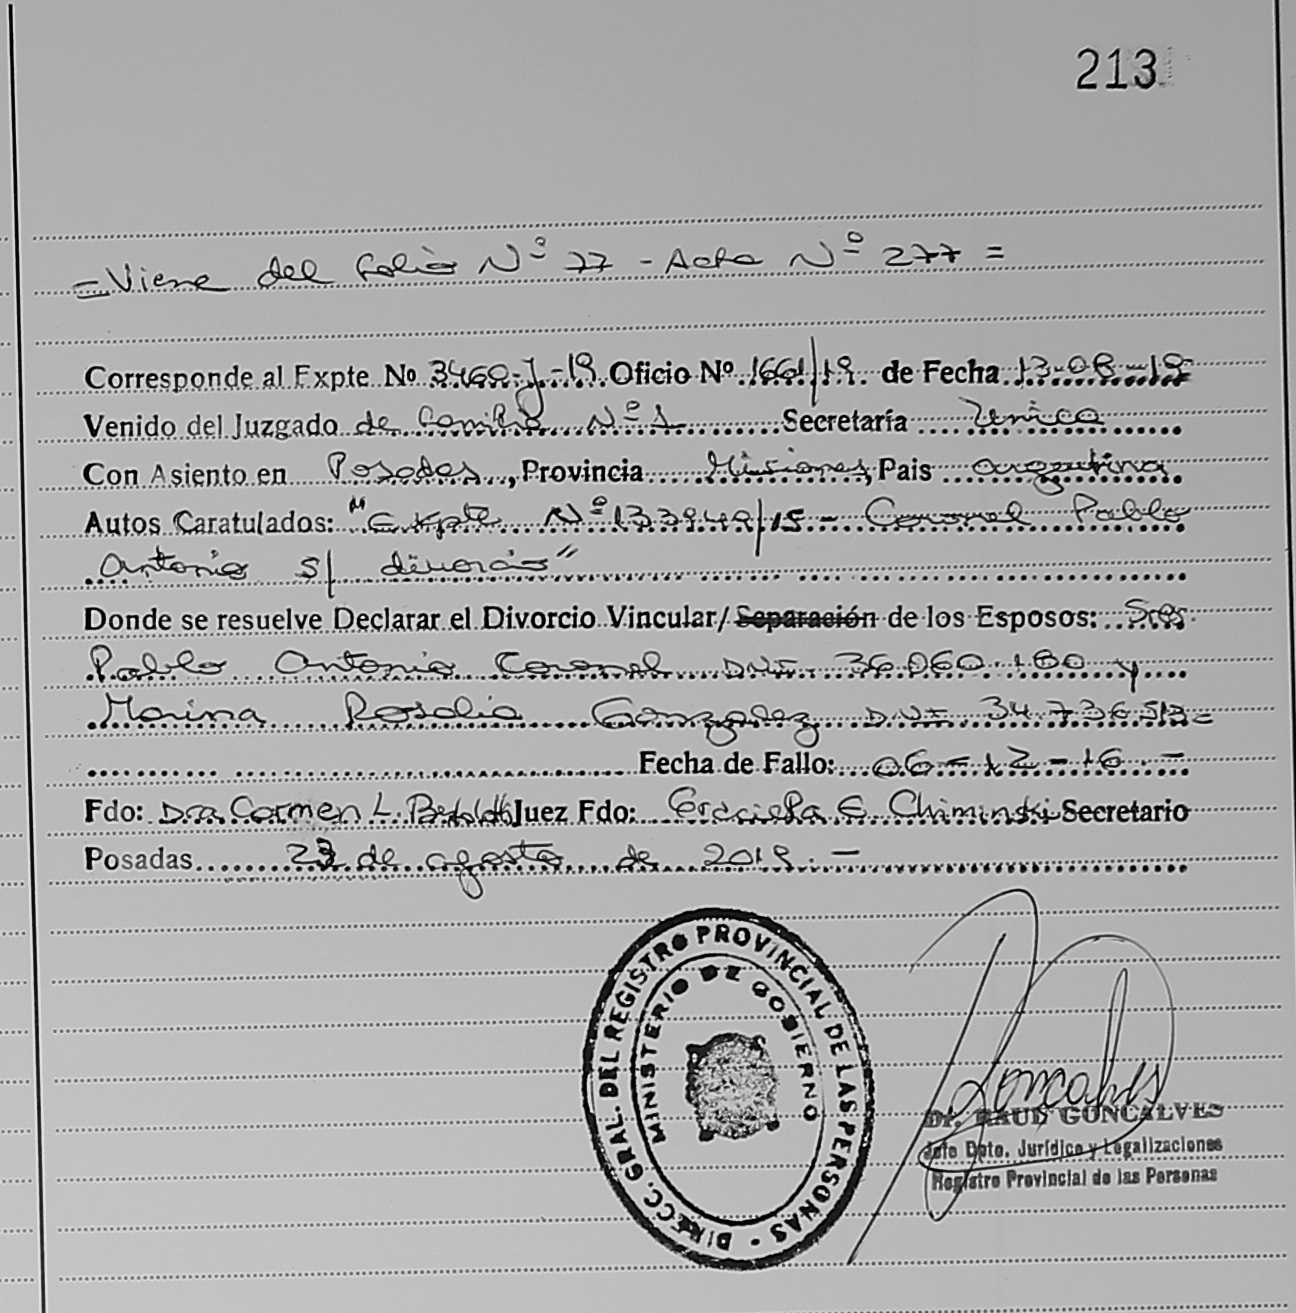 213
= Viene del folio Nº 77 - Acta Nº 277 =
Corresponde al Expte Nº 3460-J-19 Oficio Nº 1661/19 de Fecha 13-08-19
Venido del Juzgado de Familia Nº 1 Secretaría Unica
Con Asiento en Posadas, Provincia Misiones, Pais argentina
Autos Caratulados: "Expte Nº 133949/15 - Coronel Pablo
Antonio s/ divorcio"
Donde se resuelve Declarar el Divorcio Vincular/ Separación de los Esposos: Sres
Pablo Antonio Coronel DNI 36.060.180 y
Marina Rosalia Gonzalez DNI 34.736.513 =
Fecha de Fallo: 06-12-16.-
Fdo: Dra. Carmen L. Juez Fdo: Graciela E. Chiminski Secretario
Posadas 23 de agosto de 2019.-
DIRECC. GRAL. DEL REGISTRO PROVINCIAL DE LAS PERSONAS -
MINISTERIO DE GOBIERNO
Dr. RAUL GONCALVES
Jefe Dpto. Jurídico y Legalizaciones
Registro Provincial de las Personas